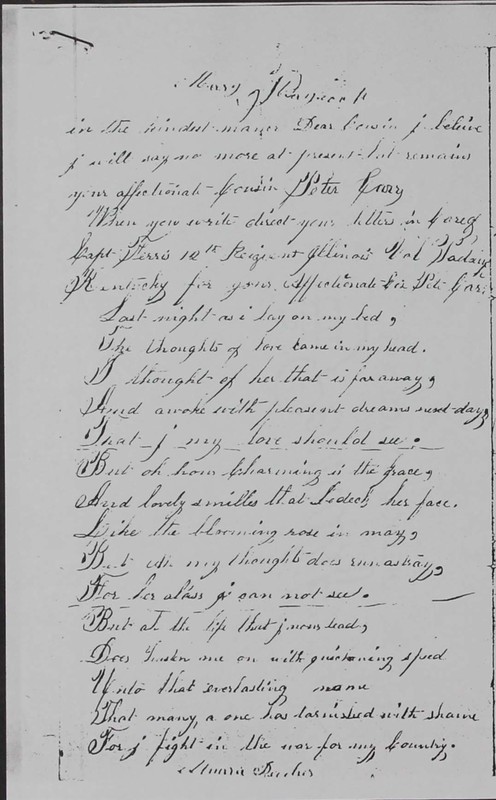 Mary
in the kindest maner Dear Cousin j beleive
j will say no more at present but remains
your affectionate Cousin Peter Cary
When you write direct your letters in Care of
Capt Ferris 12th Regiment Illinois Vol
Kentucky for your affectionate Peter
Last night as i lay on my bed,
The thoughts of love came in my head.
I thought of her that is far away,
And awoke with pleasent dreams next day,
That j my love should see.
But oh how Charming is the grace,
And lovely smilles that bedeck her face.
Like the blooming rose in may,
But my thoughts does run astray,
For her alass j can not see.
But at the life that j now lead,
Does hasten me on with quickening speed
Unto that everlasting name
That many a one has tarnished with shame
For j fight in the war for my Country.